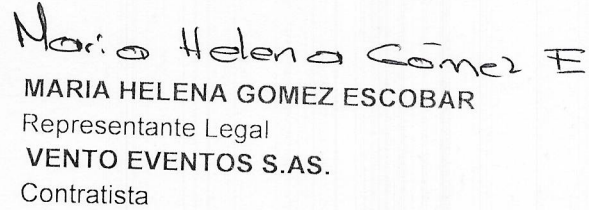 Maria Helena Gómez E
MARIA HELENA GOMEZ ESCOBAR
Representante Legal
VENTO EVENTOS S.AS.
Contratista